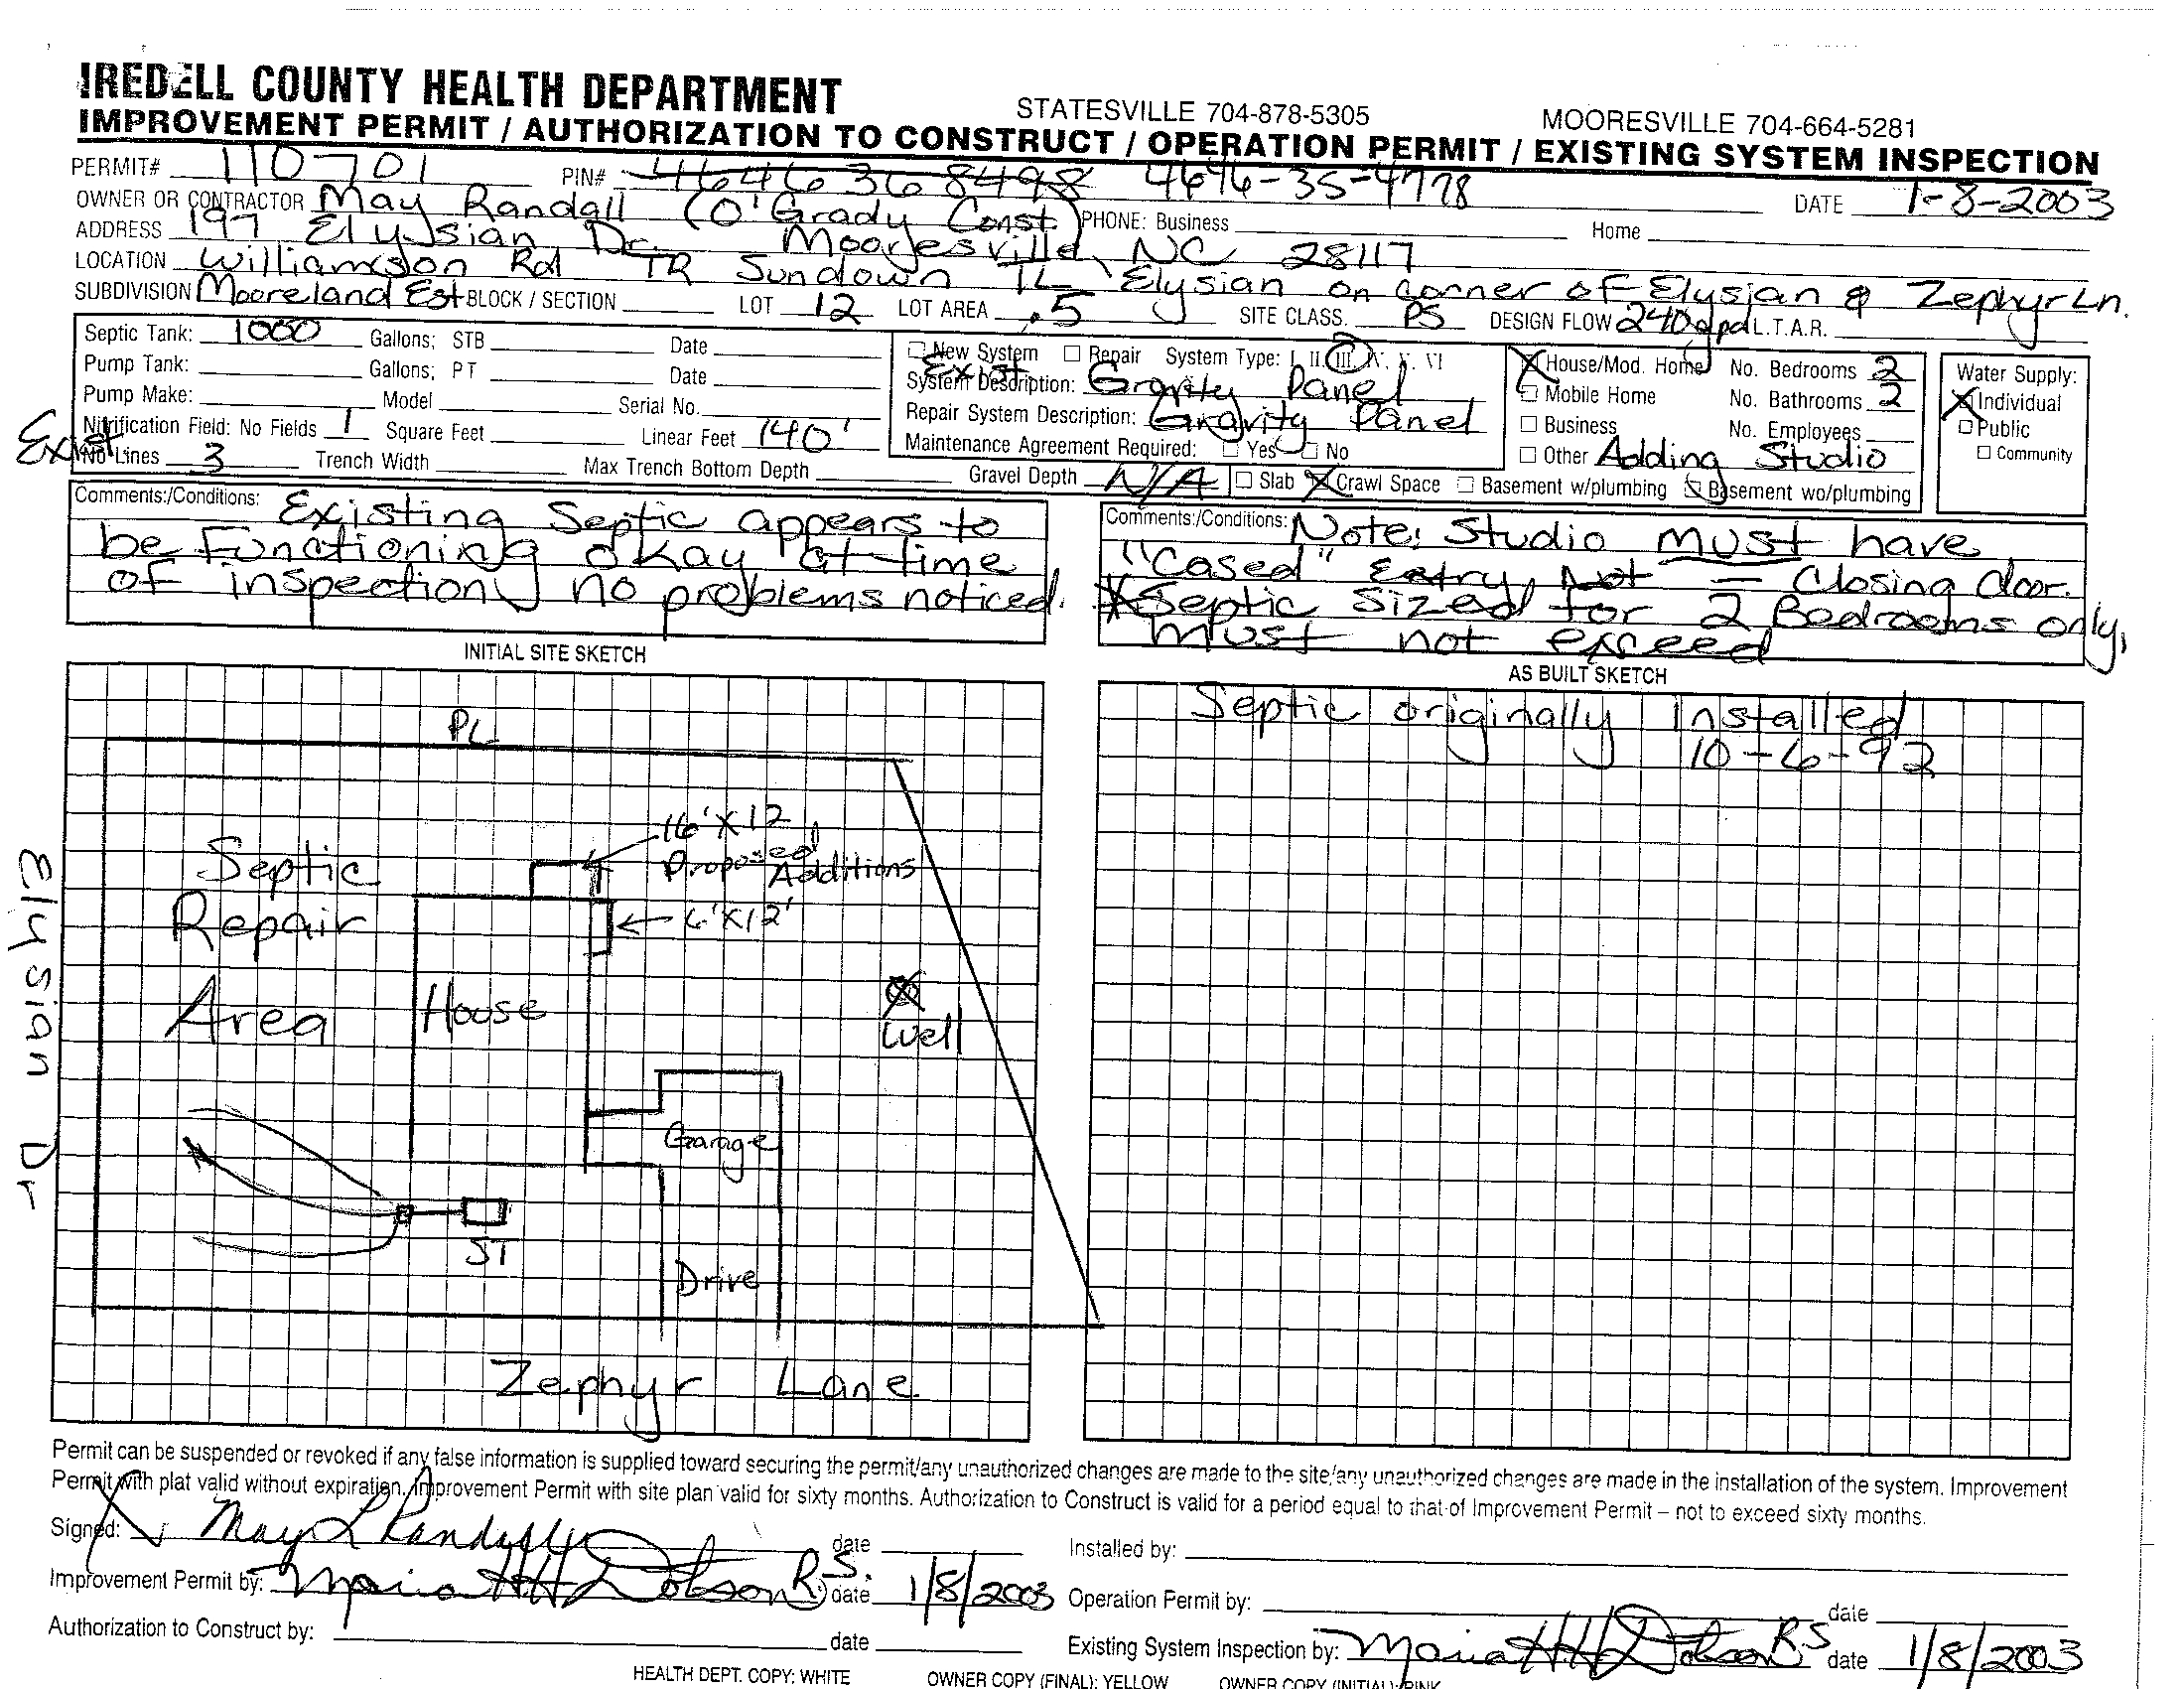 IREDELL COUNTY HEALTH DEPARTMENT STATESVILLE 704-878-5305 MOORESVILLE 704-664-5281
IMPROVEMENT PERMIT / AUTHORIZATION TO CONSTRUCT / OPERATION PERMIT / EXISTING SYSTEM INSPECTION
PERMIT# 110701 PIN# 4646368498 4646-35-4778
OWNER OR CONTRACTOR May Randall (O'Grady Const.) PHONE: Business Home DATE 1-8-2003
ADDRESS 197 Elysian Dr. Mooresville, NC 28117
LOCATION Williamson Rd TR Sundown TL Elysian on corner of Elysian & Zephyr Ln.
SUBDIVISION Mooreland Est BLOCK / SECTION LOT 12 LOT AREA .5 SITE CLASS. PS DESIGN FLOW 240gpd L.T.A.R.
Septic Tank: 1000 Gallons; STB Date
Pump Tank: Gallons; PT Date
Pump Make: Model Serial No.
Exist
Nitrification Field: No Fields 1 Square Feet Linear Feet 140'
No Lines 3 Trench Width Max Trench Bottom Depth Gravel Depth N/A
New System Repair System Type: I, II, III, IV, V, VI
Exist
System Description: Gravity Panel
Repair System Description: Gravity Panel
Maintenance Agreement Required: Yes No
House/Mod. Home No. Bedrooms 2
Mobile Home No. Bathrooms 2
Business No. Employees
Other Adding Studio
Slab Crawl Space Basement w/plumbing Basement wo/plumbing
Water Supply:
Individual
Public
Community
Comments:/Conditions: Existing Septic appears to
be functioning okay at time
of inspection, no problems noticed.
Comments:/Conditions: Note: Studio must have
"Cased" Entry, Not = Closing door.
Septic Sized for 2 Bedrooms only,
must not exceed
INITIAL SITE SKETCH
AS BUILT SKETCH
PL
16'X12'
Proposed Additions
6'X12'
Septic
Repair
Area
House
Well
Garage
ST
Drive
Elysian Dr
Zephyr Lane
Septic originally Installed
10-6-92
Permit can be suspended or revoked if any false information is supplied toward securing the permit/any unauthorized changes are made to the site/any unauthorized changes are made in the installation of the system. Improvement
Permit with plat valid without expiration. Improvement Permit with site plan valid for sixty months. Authorization to Construct is valid for a period equal to that of Improvement Permit – not to exceed sixty months.
Signed: May L Randall date Installed by:
Improvement Permit by: Maria H Dobson R.S. date 1/8/2003 Operation Permit by: date
Authorization to Construct by: date Existing System Inspection by: Maria H Dobson RS date 1/8/2003
HEALTH DEPT. COPY: WHITE OWNER COPY (FINAL): YELLOW OWNER COPY (INITIAL): PINK